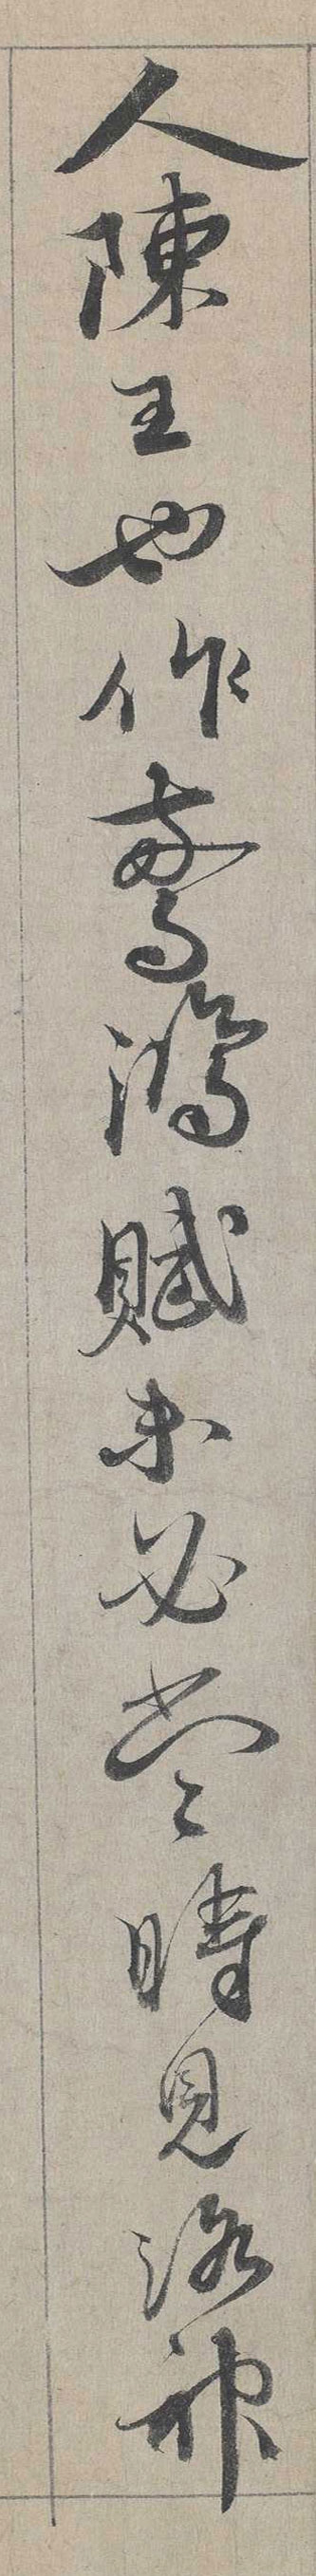 人陳王也作驚鴻賦未必當時見洛神